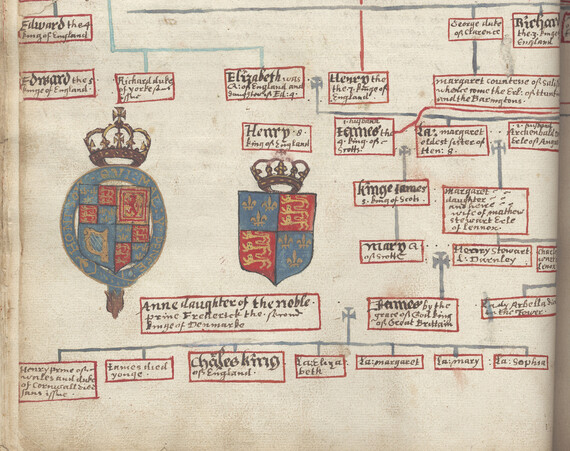 Edward the 4
king of England
George duke
of Clarence
Richard
the 3. kinge
England
Edward the 5
kinge of England.
Richard duke
of yorke
issue
Elizabeth was
Q: of England and
daughter of Ed: 4.
Henry the
the 7. kinge of
England
margaret countesse of
whole come the Erle of
and the Barringtons.
Henry .8.
king of England
1 husband
James the
4. king of
Scotts
La: margaret
oldest sister of
Hen: 8.
Archenbald
Erle of
kinge James
5. king of Scott.
Margaret
daughter
and heire
wife of mathew
stewart Erle
of Lennox
mary Q
of Scotte
Henry Stewart
L: Darnley
Charles
Lenox
Anne daughter of the noble
Prince Frederick the second
kinge of Denmarke
James by the
grace of God king
of Great Brittain
Lady Arbella
in the Tower
Henry Prince of
wales and duke
of Cornwall died
sans issue
James died
yonge.
Charles king
of England
La: Eliza
beth
La: margaret
La: mary
La: Sophia